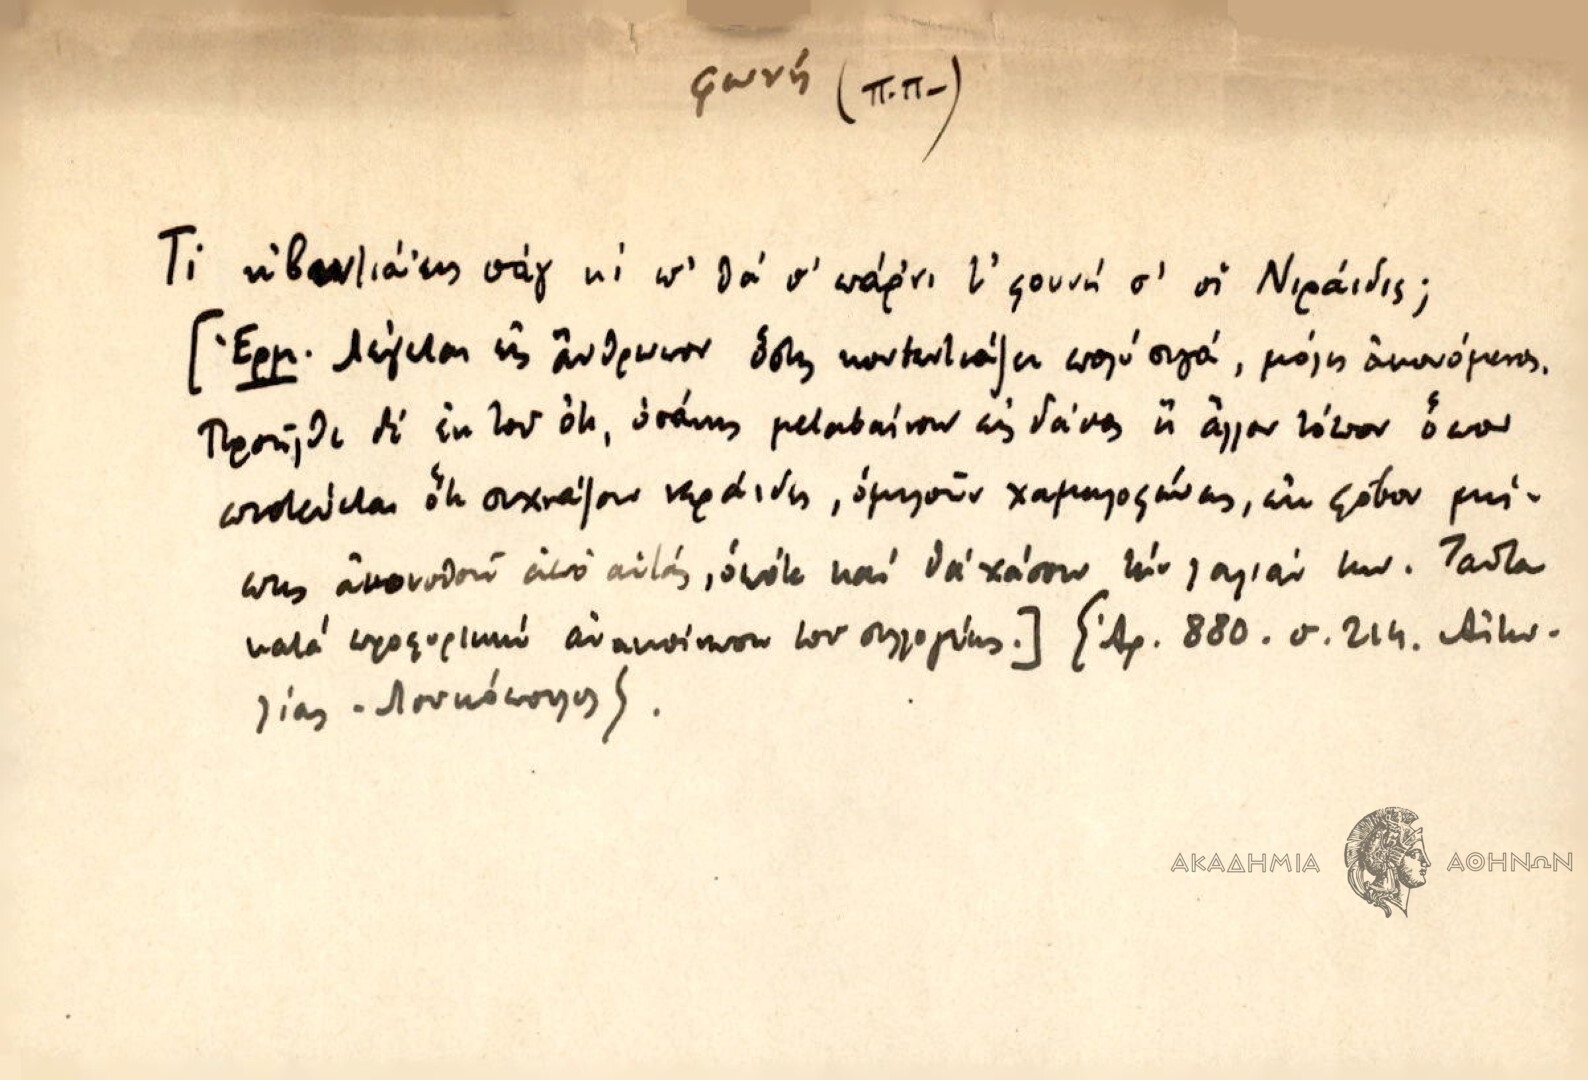 φωνή (π.π-)
Τί κ'βαντιάεις σάγ κί π' θά σ' πάρ'νι τ' φουνή σ' οἱ Νιράιδις;
[Ἑρμ. Λέγεται εἰς ἄνθρωπον ὅστις κουβεντιάζει πολύ σιγά, μόλις ἀκουόμενος.
Προῆλθε δέ ἐκ τοῦ ὅτι, ὁσάκις μεταβαίνουν εἰς δάσος ἤ ἄλλον τόπον ὅπου
πιστεύεται ὅτι συχνάζουν νεράιδες, ὁμιλοῦν χαμηλοφώνως, ἐκ φόβου μή-
πως ἀκουσθοῦν ἀπό αὐτάς, ὁπότε καί θά χάσουν τήν λαλιάν των. Ταῦτα
κατά προφορικήν ἀνακοίνωσιν τοῦ συλλογέως.] {Ἀρ. 880. σ. 214. Αἰτω-
λίας - Λουκόπουλος}.
ΑΚΑΔΗΜΙΑ ΑΘΗΝΩΝ